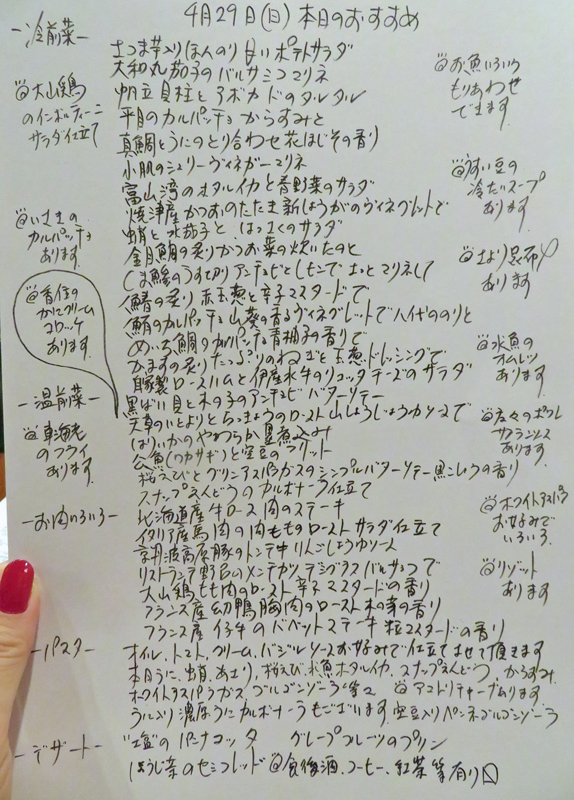 4月29日(日) 本日のおすすめ
-冷前菜-
さつま芋入りほんのり甘いポテトサラダ
大和丸茄子のバルサミコマリネ
帆立貝柱とアボカドのタルタル
平目のカルパッチョ からすみと
真鯛とうにのとり合わせ花ほじその香り
小肌のシェリーヴィネガーマリネ
富山湾のホタルイカと春野菜のサラダ
焼津産かつおのたたき新しょうがのヴィネグレットで
蛸と水茄子とはっさくのサラダ
金目鯛の炙りかつお菜の炊いたのと
しま鯵のうす切りアンチョビとしそでさっとマリネして
鯖の炙り 赤玉葱と辛子マスタードで
鮪のカルパッチョ山葵の香るヴィネグレットで八代ののりと
めいち鯛のカルパッチョ青柚子の香りで
かますの炙りたっぷりのねぎと玉葱ドレッシングで
自家製ロースハムと伊産水牛のリコッタチーズのサラダ
@大山鶏
のインボルティーニ
サラダ仕立て
@いさきの
カルパッチョ
あります
@香住の
かにクリーム
コロッケ
あります
@お魚いろいろ
もりあわせ
できます
@うすい豆の
冷たいスープ
あります
@さより昆布〆
あります
-温前菜-
黒ばい貝と木の子のアンチョビバターソテー
天草のいとよりとらっきょうのロースト山しょうじょうゆソースで
ほたるいかのやわらか墨煮込み
公魚(ワカサギ)と空豆のフリット
桜えびとグリンアスパラガスのシンプルバターソテー黒こしょうの香り
スナップえんどうのカルボナーラ仕立て
@車海老
のフライ
あります
@氷魚の
オムレツ
あります
サフランソース
あります
@ホワイトアスパラ
お好みで
いろいろ
@リゾット
あります
-お肉いろいろ-
北海道産牛ロース肉のステーキ
イタリア産馬肉の内もものローストサラダ仕立て
京丹波高原豚のトンテキりんごしょうがソース
リストランテ野呂のメンチカツデミグラスバルサミコで
大山鶏もも肉のロースト辛子マスタードの香り
フランス産幼鴨胸肉のロースト木の香の香り
フランス産仔牛のバベットステーキ粒マスタードの香り
-パスタ-
オイル、トマト、クリーム、バジルソースお好みで仕立てさせて頂きます
本日うに、蛸、あさり、桜えび、氷魚ホタルイカ、スナップえんどう、からすみ
ホワイトアスパラガス ゴルゴンゾーラ等々 @アコトリチャーブムあります
うに入り濃厚うにカルボナーラもございます。空豆入りペンネゴルゴンゾーラ
-デザート-
"塩"のパンナコッタ グレープフルーツのプリン
ほうじ茶のセミフレッド @食後酒、コーヒー、紅茶等有り